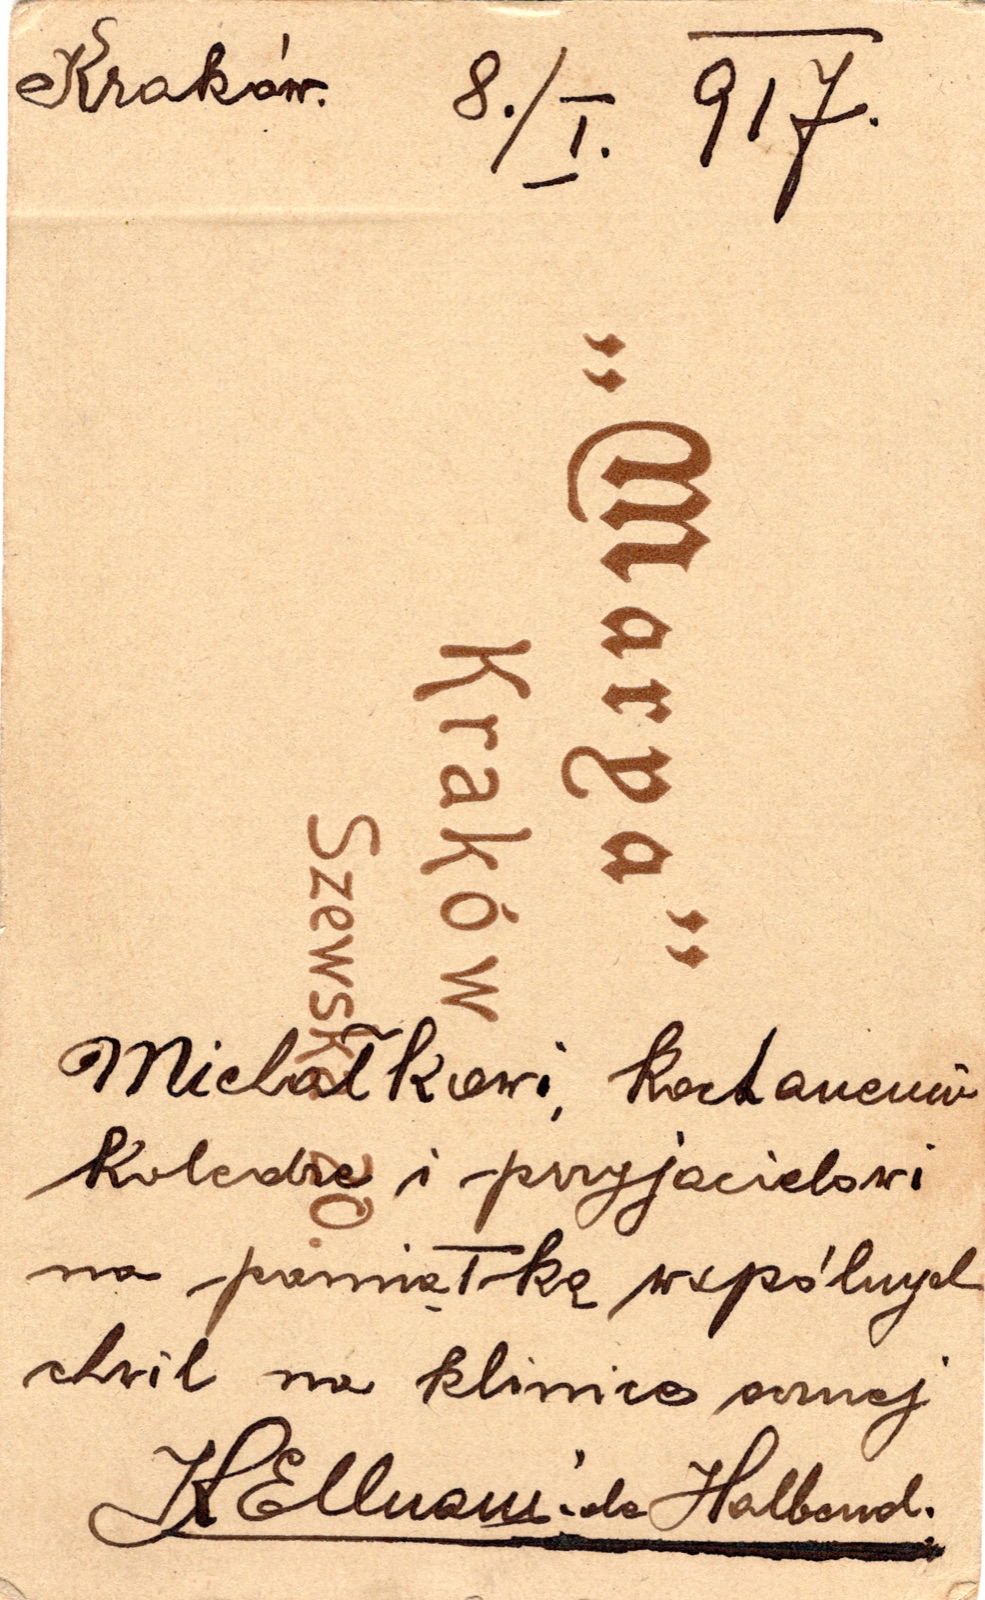 Kraków. 8./I. 917.
„Marga”
Kraków
Szewska 10.
Michałkowi, kochanemu
koledze i przyjacielowi
na pamiątkę wspólnych
chwil na klinice ocznej
de Halband.